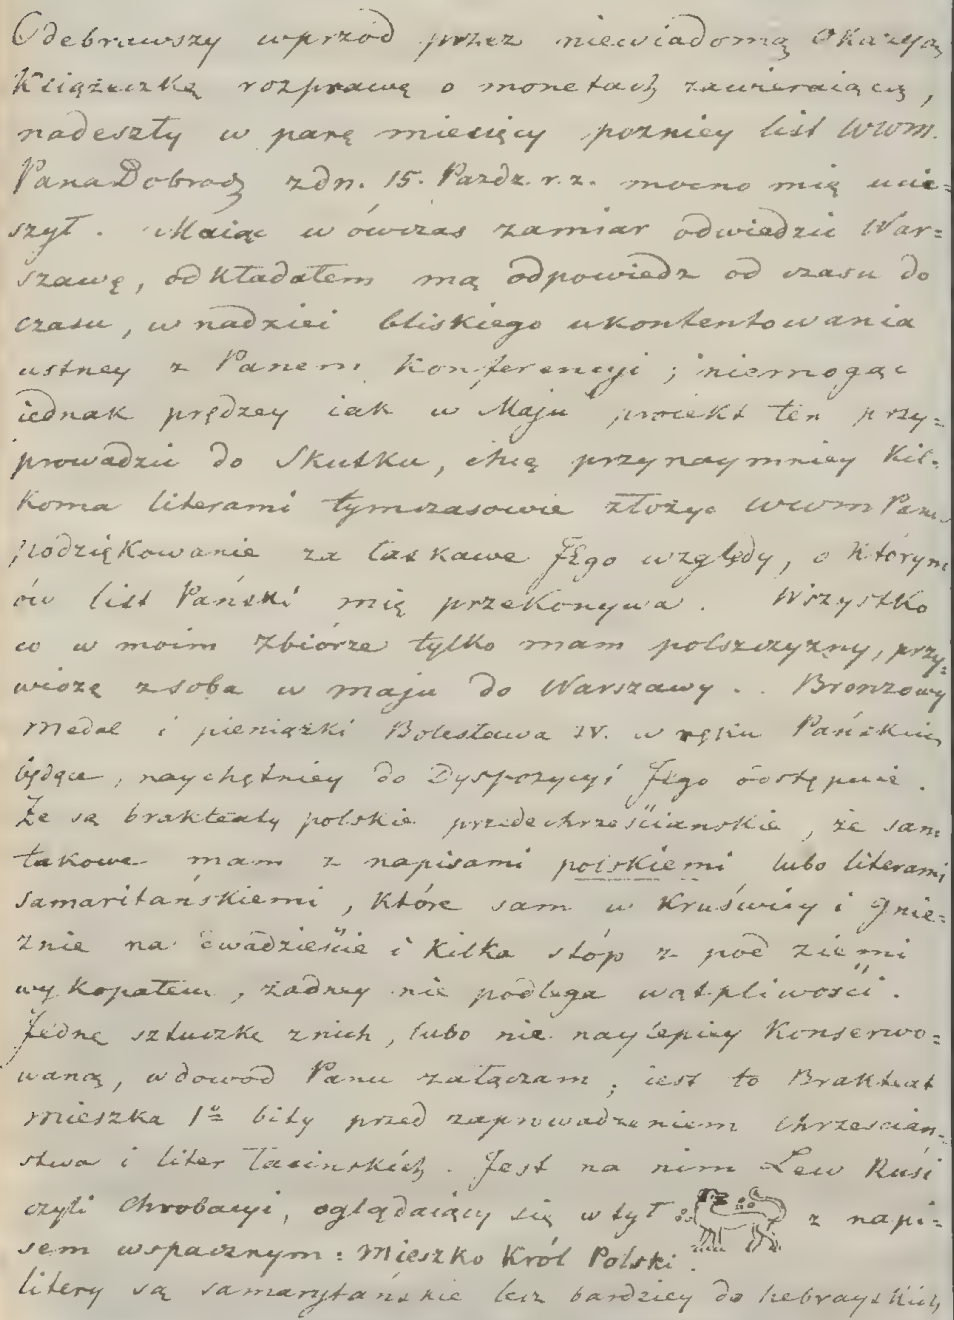 Odebrawszy wprzód przez niewiadomą Okazyą
Książeczkę rozprawę o monetach zawieraiącą,
nadeszły w parę miesięcy pozniey list WWM.
Pana Dobrodz zdn. 15. Pazdz. r. z. mocno mię ucie=
szył. Maiąc wówczas zamiar odwiedzić War=
szawę, odkładałem mą odpowiedz od czasu do
czasu, w nadziei bliskiego ukontentowania
ustney z Panem Konferencyi; niemogąc
iednak prędzey iak w Maju proiekt ten przy=
prowadzić do Skutku, chcę przynaymniey Kil=
Koma literami tymczasowie złożyć WWM Panu
podziękowanie za łaskawe JEgo względy, o którym
ów list Pański mię przekonywa. Wszystko
co w moim Zbiórze tylko mam polszczyzny, przy=
wiozę zsobą w maju do Warszawy. Bronzowy
Medal i pieniążki Bolesława IV. w ręku Pańskim
będące, naychętniey do Dyspozycyi Jego odstępuie.
Że są brakteaty polskie przedechrześcianskie, że sam
takowe mam z napisami polskiemi lubo literami
samaritańskiemi, które sam w Kruświcy i Gnie=
znie na dwadzieście i kilka stóp z pod ziemi
wykopałem, żadney nie podlega wątpliwości.
Jednę sztuczkę znich, lubo nie naylepiey Konserwo=
waną, wdowód Panu załączam; iest to Brakteat
Mieszka 1º bity przed zaprowadzeniem chrzescian=
stwa i liter łacinskich. Jest na nim Lew Rusi
czyli Chrobacyi, oglądaiący się w tył z napi=
sem wspacznym: Mieszko Król Polski.
litery są samarytańskie lecz bardziey do hebrayskich